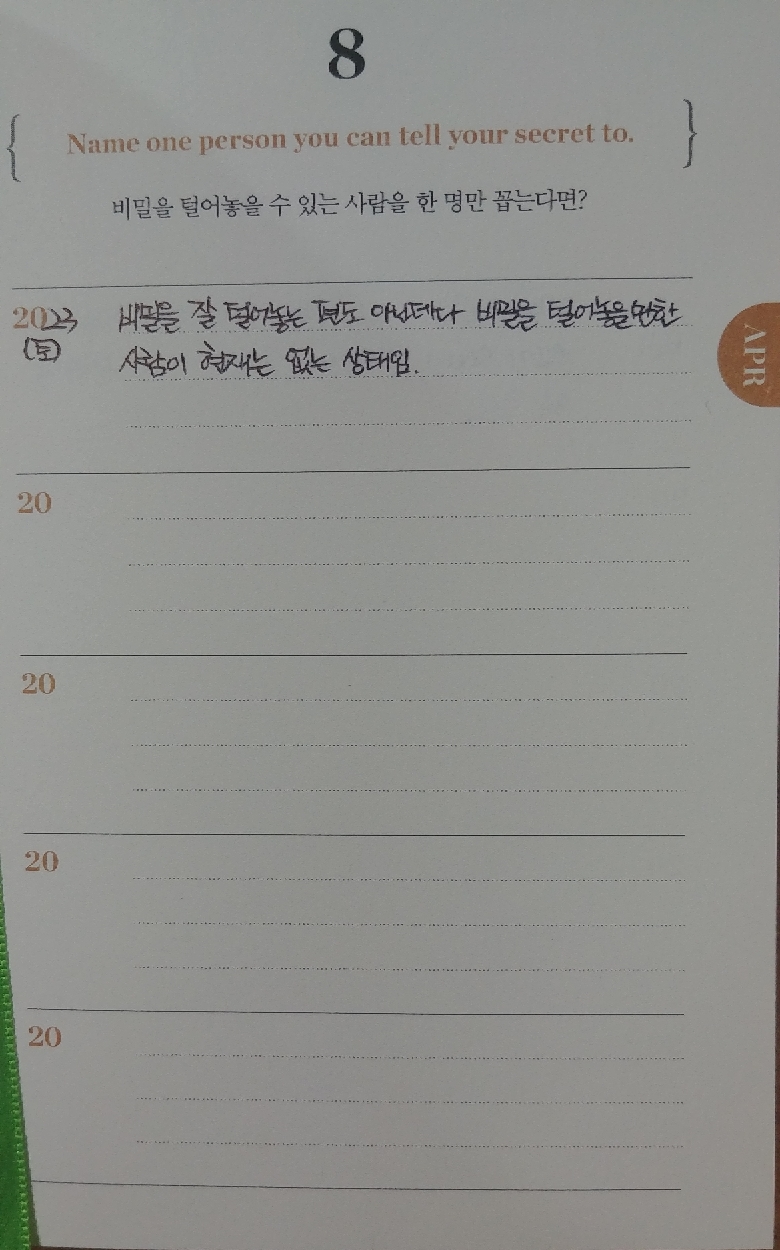 8
Name one person you can tell your secret to.
비밀을 털어놓을 수 있는 사람을 한 명만 꼽는다면?
2023 비밀을 잘 털어놓는 편도 아닌데다 비밀을 털어놓을만한
(토) 사람이 현재는 없는 상태임.
APR
20
20
20
20